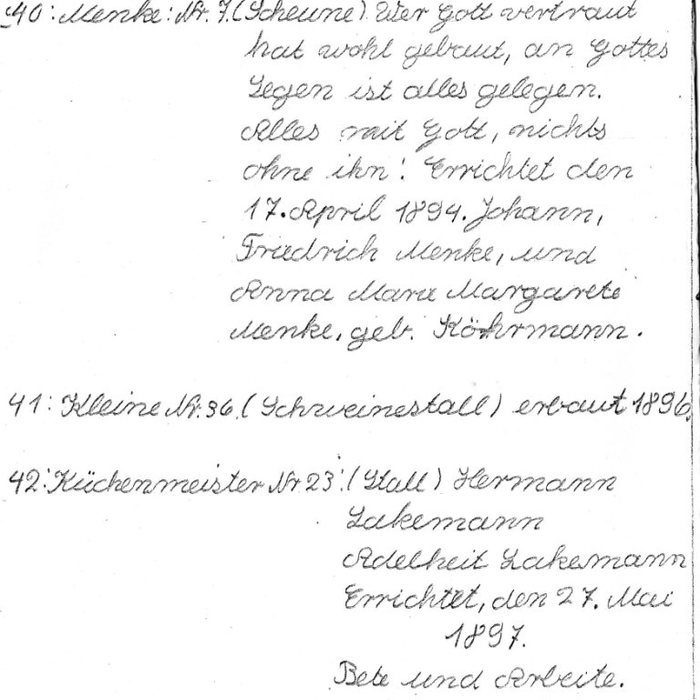 40: Menke: Nr. 7. (Scheune). Wer Gott vertraut
hat wohl gebaut, an Gottes
Segen ist alles gelegen.
Alles mit Gott, nichts
ohne ihn! Errichtet den
17. April 1894. Johann,
Friedrich Menke, und
Anna Marie Margarete
Menke, geb. Köhrmann.
41: Kleine Nr. 36. (Schweinestall) erbaut 1896.
42: Küchenmeister Nr 23. (Stall) Hermann
Lakemann
Adelheit Lakemann
Errichtet, den 27. Mai
1897.
Bete und Arbeite.